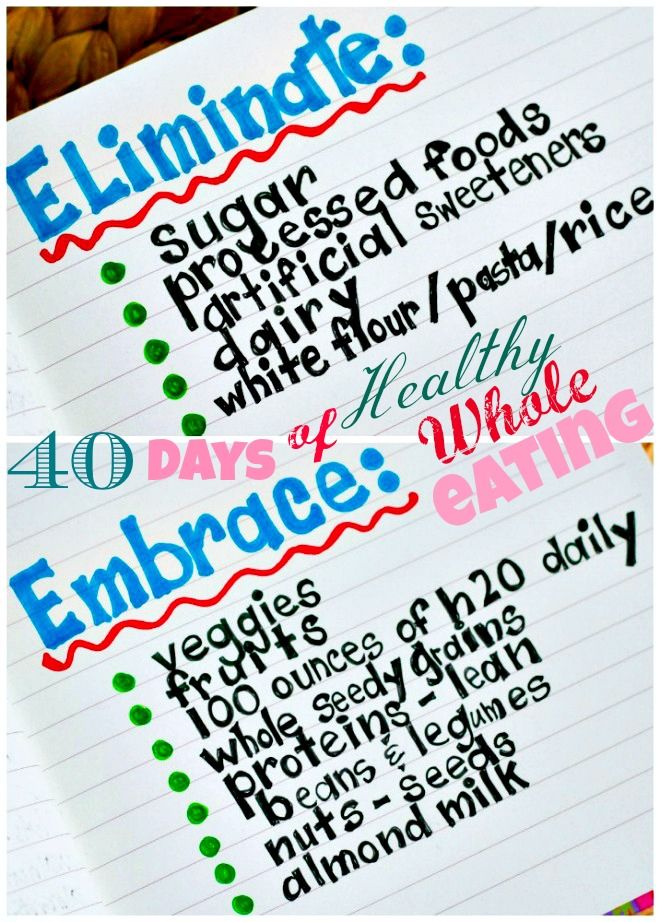 ELiminate:
sugar
processed foods
artificial sweeteners
dairy
white flour/pasta/rice
40 DAYS of Healthy
Whole
eATiNG
Embrace:
veggies
fruits
100 ounces of h20 daily
whole seedy grains
proteins - lean
beans & legumes
nuts - seeds
almond milk